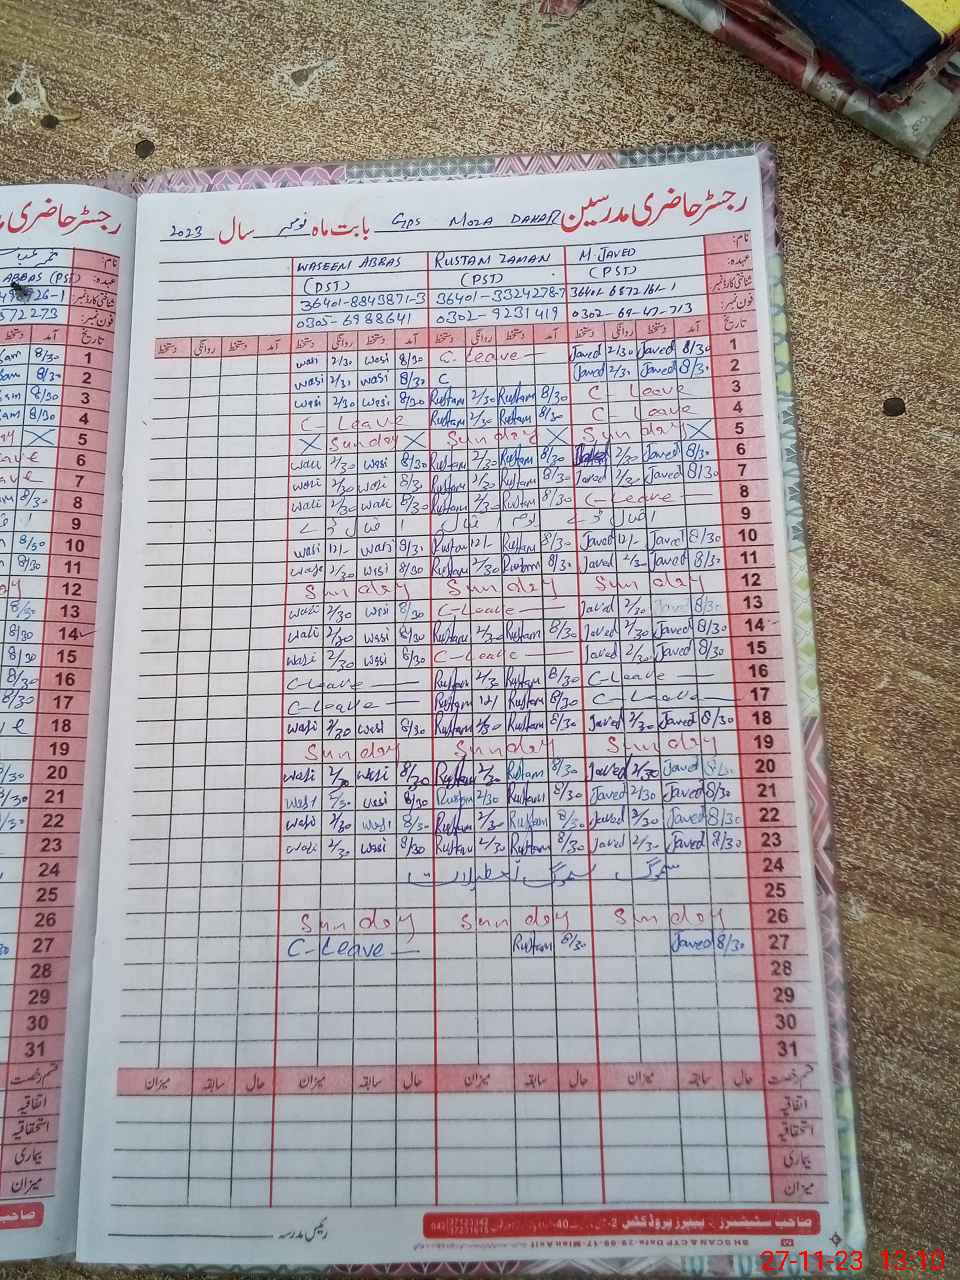 رجسٹر حاضری مدرسین GPS MOZA DAHAR بابت ماہ نومبر سال 2023
نام: M. JAVED RUSTAM ZAMAN WASEEM ABBAS
عہدہ: (PST) (PST) (PST)
شناختی کارڈ نمبر: 36401-3324278-7 36401-8843871-3
فون نمبر: 0302-69-47-713 0302-9231419 0305-6988641
تاریخ آمد دستخط روانگی دستخط آمد دستخط روانگی دستخط آمد دستخط روانگی دستخط آمد دستخط روانگی دستخط
1 8/30 Javed 2/30 Javed C-Leave 8/30 wasi 2/30 wasi
2 8/30 Javed 2/30 Javed C 8/30 wasi 2/30 wasi
3 C-Leave 8/30 Rustam 2/30 Rustam 8/30 wasi 2/30 wasi
4 C-Leave 8/30 Rustam 2/30 Rustam C-Leave
5 Sunday Sunday Sunday
6 8/30 Javed 2/30 Javed 8/30 Rustam 2/30 Rustam 8/30 wasi 2/30 wasi
7 8/30 Javed 2/30 Javed 8/30 Rustam 2/30 Rustam 8/30 wasi 2/30 wasi
8 C-Leave 8/30 Rustam 2/30 Rustam 8/30 wasi 2/30 wasi
9 اقبال ڈے یوم اقبال اقبال ڈے
10 8/30 Javed 12/- Javed 8/30 Rustam 12/- Rustam 8/30 wasi 12/- wasi
11 8/30 Javed 2/30 Javed 8/30 Rustam 2/30 Rustam 8/30 wasi 2/30 wasi
12 Sunday Sunday Sunday
13 8/30 Javed 2/30 Javed C-Leave 8/30 wasi 2/30 wasi
14 8/30 Javed 2/30 Javed 8/30 Rustam 2/30 Rustam 8/30 wasi 2/30 wasi
15 8/30 Javed 2/30 Javed C-Leave 8/30 wasi 2/30 wasi
16 C-Leave 8/30 Rustam 2/30 Rustam C-Leave
17 C-Leave 8/30 Rustam 12/ Rustam C-Leave
18 8/30 Javed 2/30 Javed 8/30 Rustam 2/30 Rustam 8/30 wasi 2/30 wasi
19 Sunday Sunday Sunday
20 8/30 Javed 2/30 Javed 8/30 Rustam 2/30 Rustam 8/30 wasi 2/30 wasi
21 8/30 Javed 2/30 Javed 8/30 Rustam 2/30 Rustam 8/30 wasi 2/30 wasi
22 8/30 Javed 2/30 Javed 8/30 Rustam 2/30 Rustam 8/30 wasi 2/30 wasi
23 8/30 Javed 2/30 Javed 8/30 Rustam 2/30 Rustam 8/30 wasi 2/30 wasi
24 سموگ سموگ تعطیلات
25
26 Sunday Sunday Sunday
27 8/30 Javed 8/30 Rustam C-Leave
28
29
30
31
قسم رخصت حال سابقہ میزان حال سابقہ میزان حال سابقہ میزان
اتفاقیہ
استحقاقیہ
بیماری
میزان
صاحب سٹیشنرز - پیپرز پروڈکٹس
رئیس مدرسہ
27-11-23 13:10